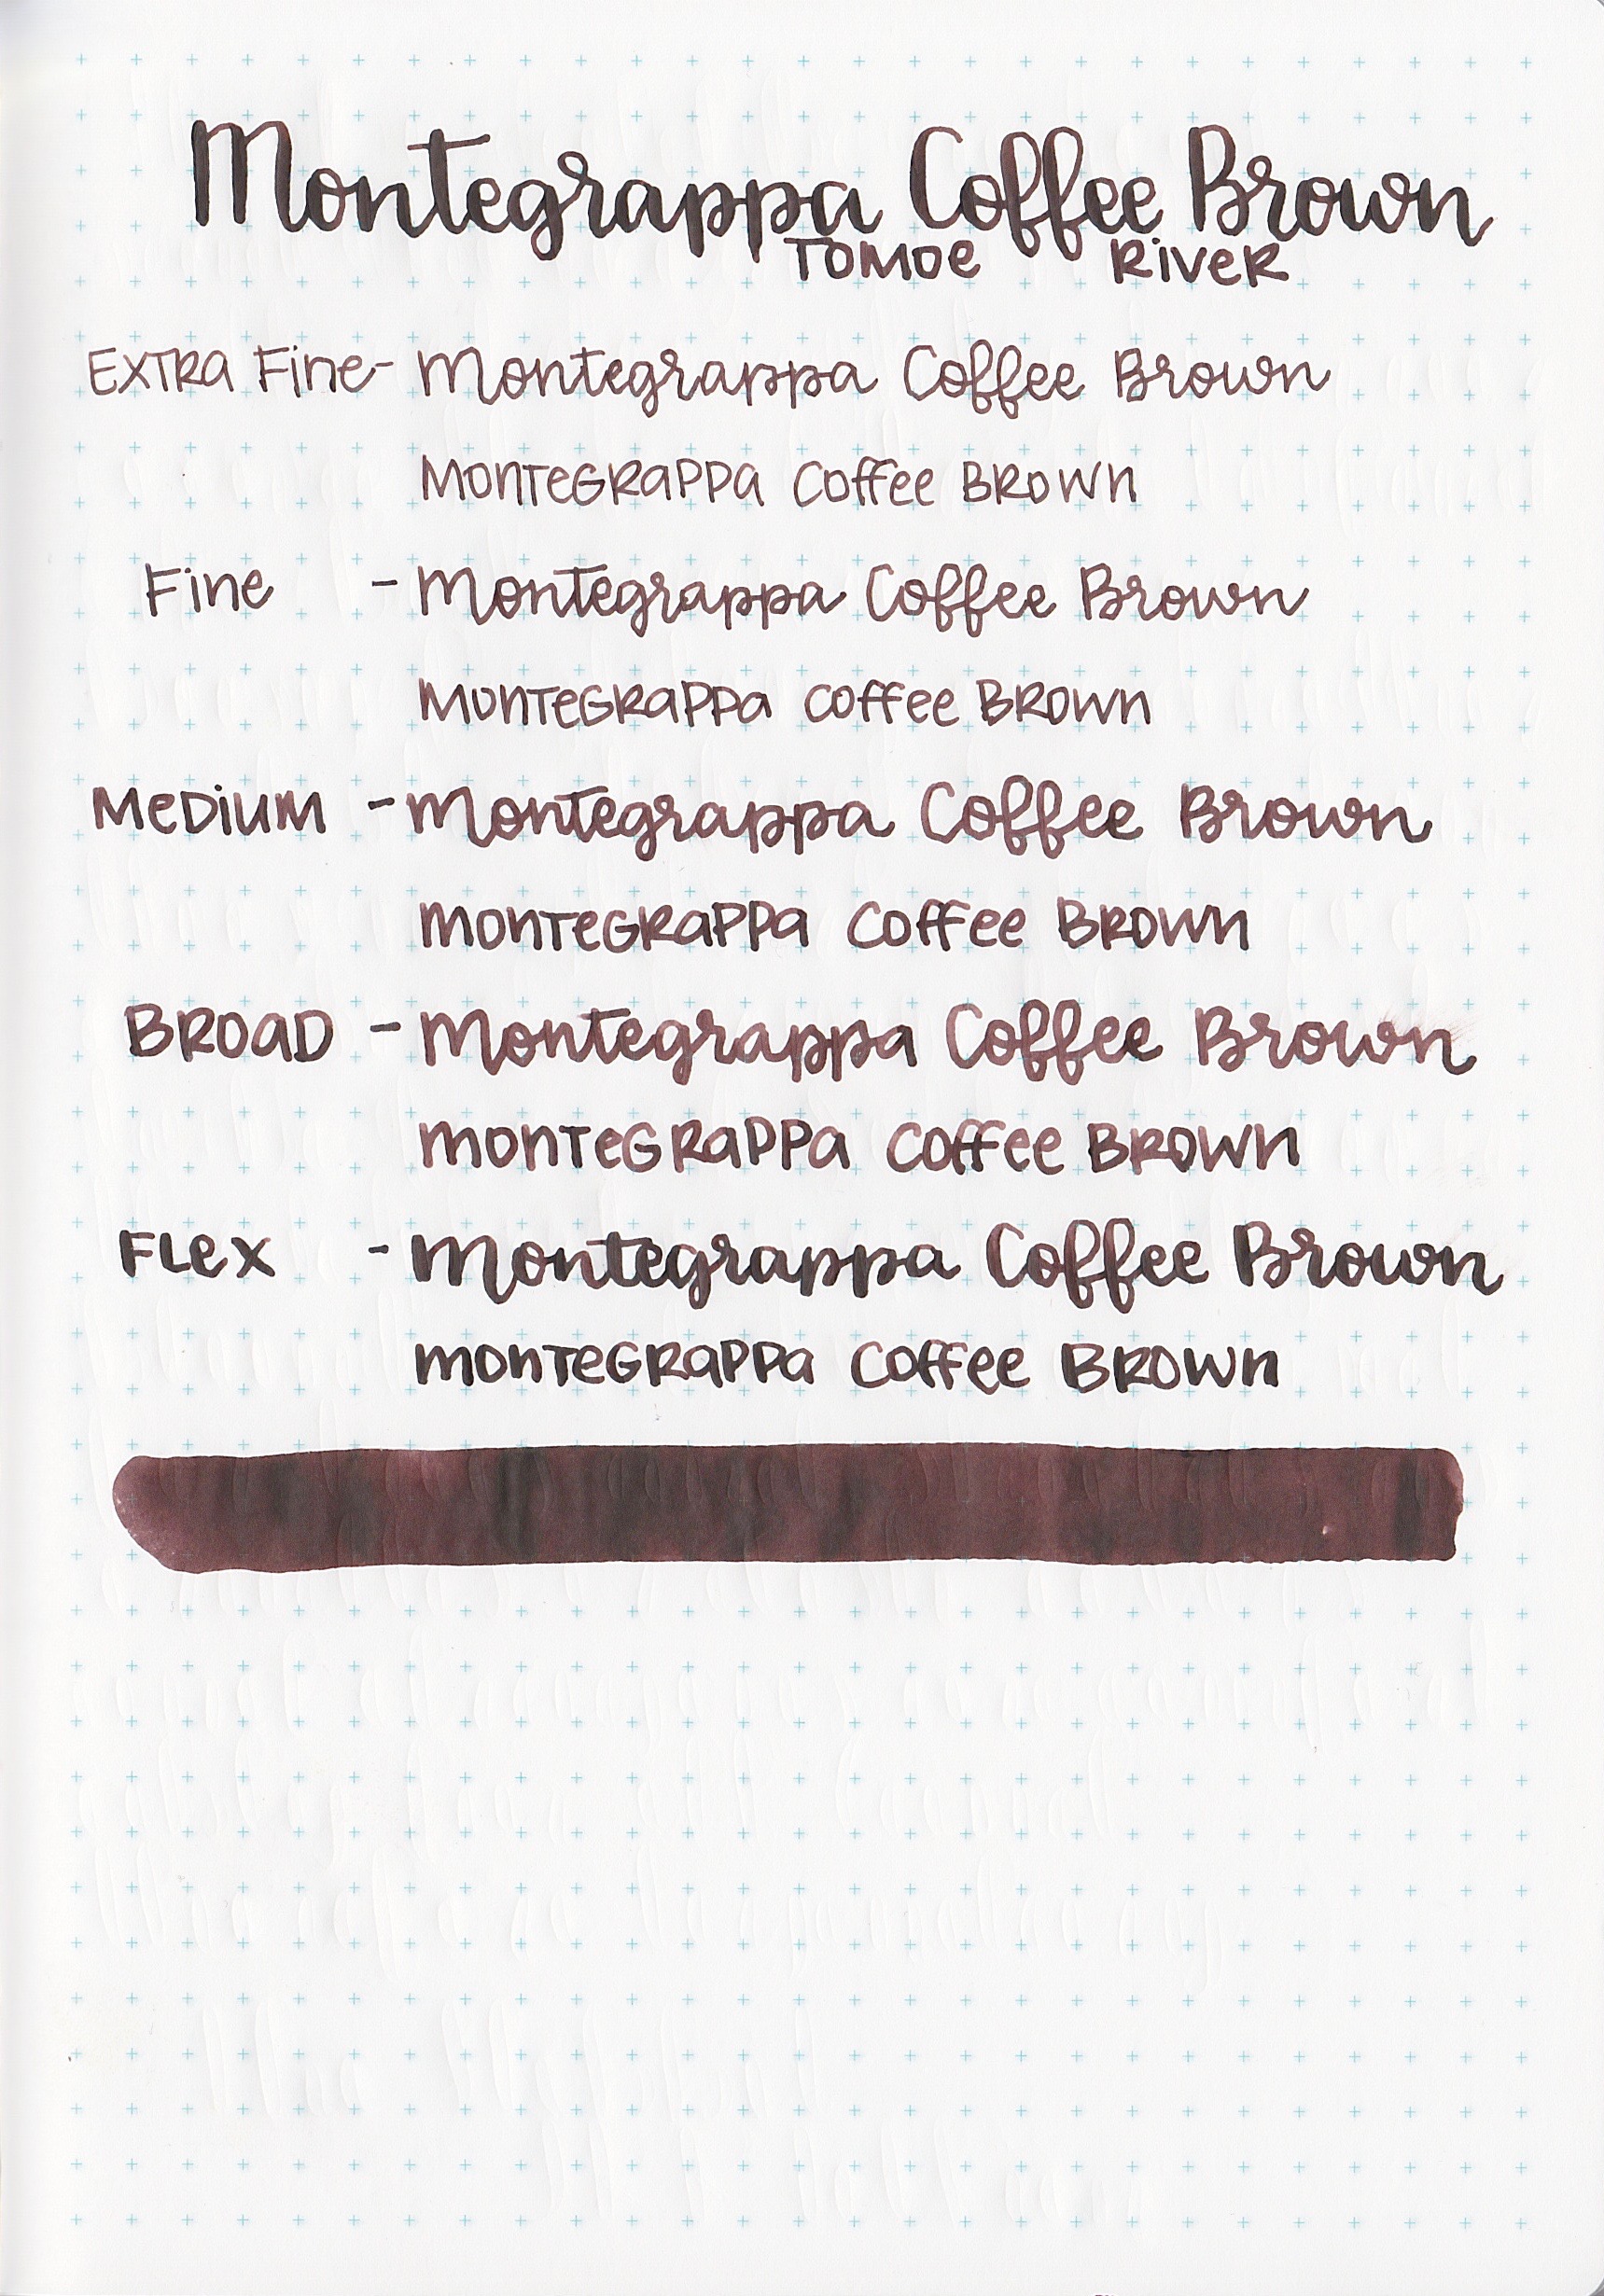 Montegrappa Coffee Brown
TOMOE RiVeR
EXTRA Fine - Montegrappa Coffee Brown
MONTeGRaPPa Coffee BROWN
Fine - Montegrappa Coffee Brown
MONTeGRaPPa Coffee BROWN
MeDiUM - Montegrappa Coffee Brown
MONTeGRaPPa Coffee BROWN
BROaD - Montegrappa Coffee Brown
MONTeGRaPPa Coffee BROWN
FLeX - Montegrappa Coffee Brown
MONTeGRaPPa Coffee BROWN